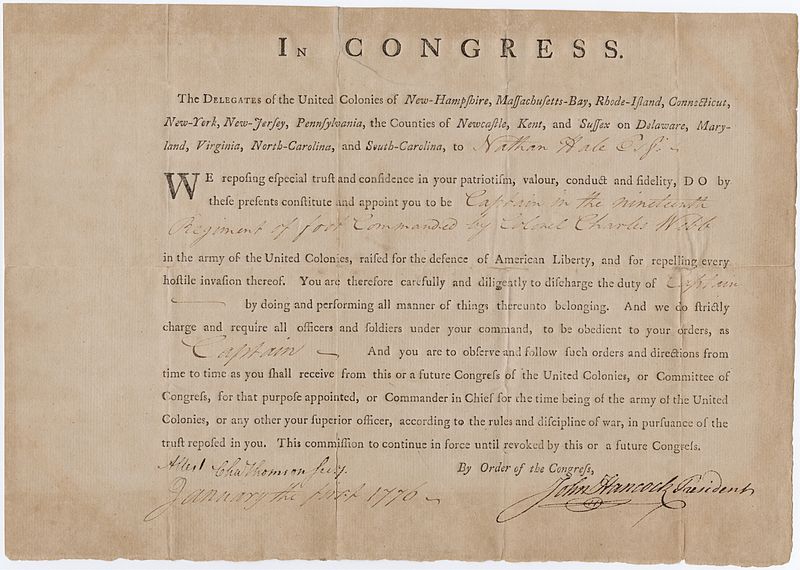 In CONGRESS.
The DELEGATES of the United Colonies of New-Hampſhire, Maſſachuſetts-Bay, Rhode-Iſland, Connecticut,
New-York, New-Jerſey, Pennſylvania, the Counties of Newcaſtle, Kent, and Suſſex on Delaware, Mary-
land, Virginia, North-Carolina, and South-Carolina, to Nathan Hale Esqr.
WE repoſing eſpecial truſt and confidence in your patriotiſm, valour, conduct and fidelity, DO by
theſe preſents conſtitute and appoint you to be Captain in the nineteenth
Regiment of foot Commanded by Colonel Charles Webb
in the army of the United Colonies, raiſed for the defence of American Liberty, and for repelling every
hoſtile invaſion thereof. You are therefore carefully and diligently to diſcharge the duty of Captain
by doing and performing all manner of things thereunto belonging. And we do ſtrictly
charge and require all officers and ſoldiers under your command, to be obedient to your orders, as
Captain And you are to obſerve and follow ſuch orders and directions from
time to time as you ſhall receive from this or a future Congreſs of the United Colonies, or Committee of
Congreſs, for that purpoſe appointed, or Commander in Chief for the time being of the army of the United
Colonies, or any other your ſuperior officer, according to the rules and diſcipline of war, in purſuance of the
truſt repoſed in you. This commiſſion to continue in force until revoked by this or a future Congreſs.
By Order of the Congreſs,
Attest Cha Thomson Secy.
January the first 1776
John Hancock President